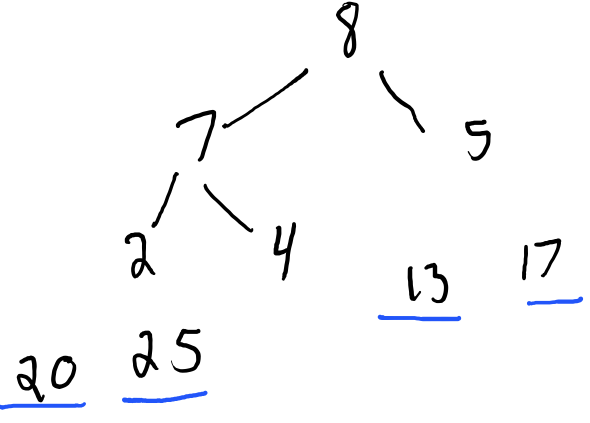 8
7 5
2 4 13 17
20 25